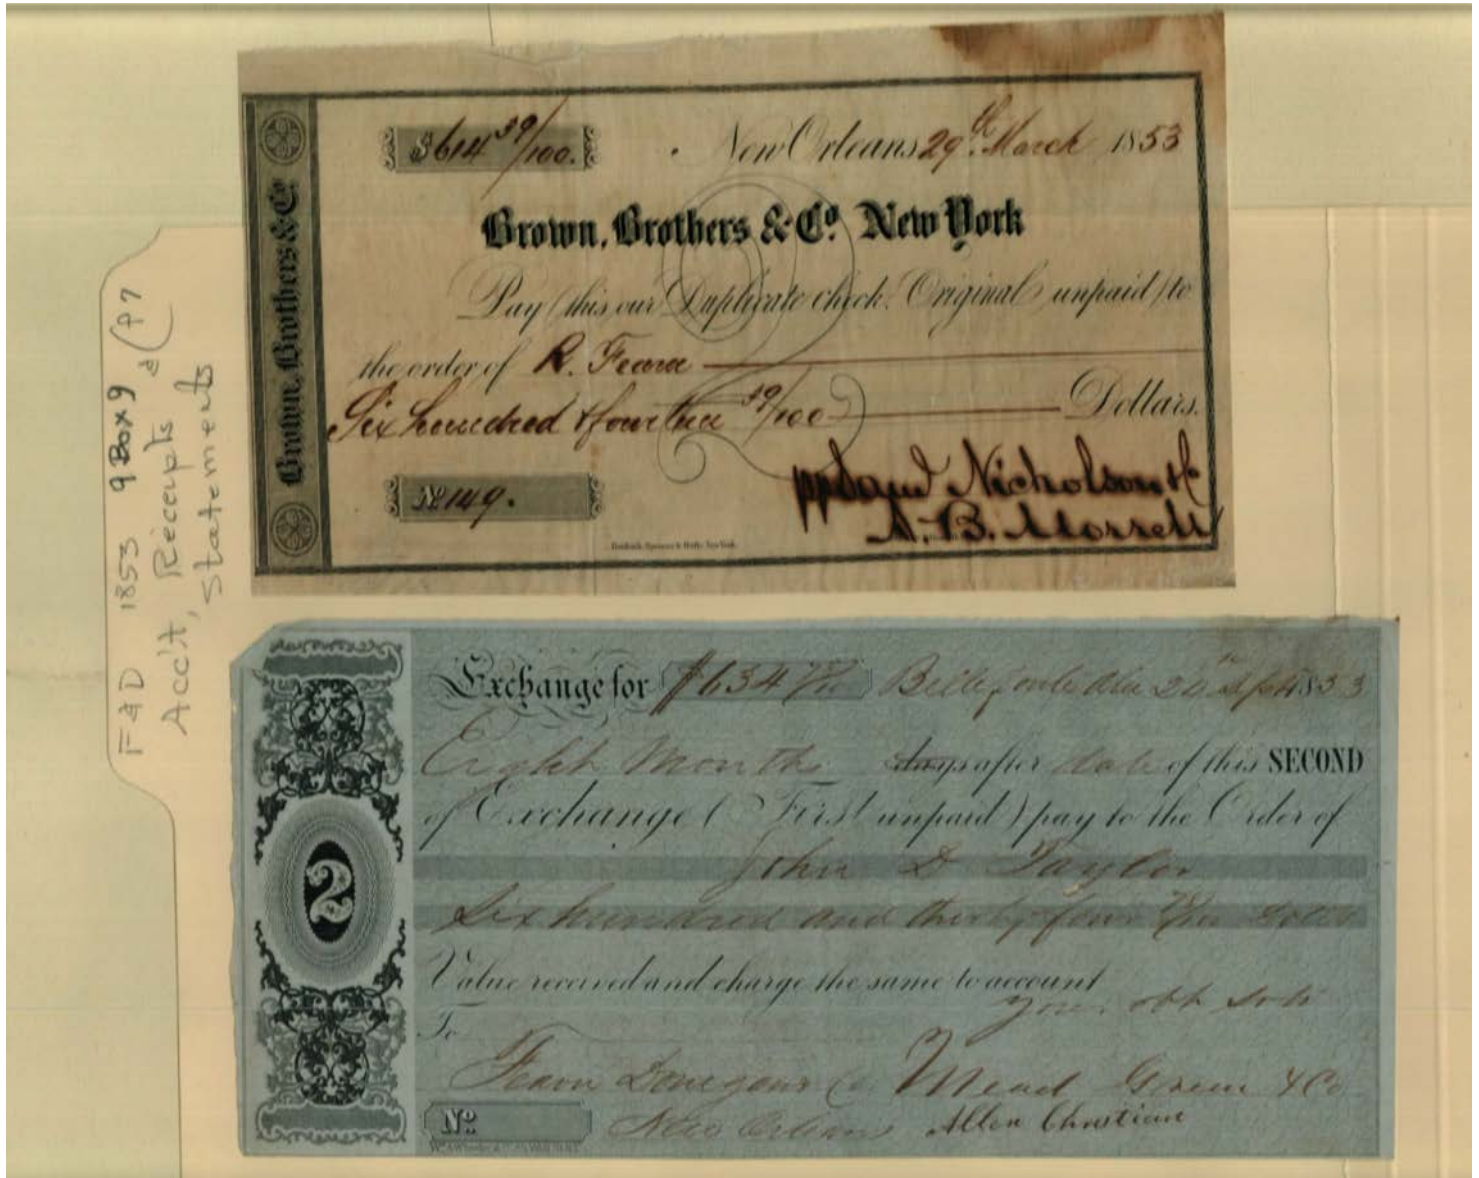 F & D 1853 9 Box 9
Acc't, Receipts & (P7
Statements
Brown, Brothers & Co
$614 39/100. New Orleans 29th March 1853
Brown, Brothers & Co. New York
Pay (this our Duplicate check. Original unpaid) to
the order of R. Fearn
Six hundred & fourteen 39/100 Dollars.
No 149.
Nicholson & Co
A. B. Morrell
2
Exchange for $634 Bellefonte Ala 20th Sept 1853
Eight Months days after date of this SECOND
of Exchange (First unpaid) pay to the Order of
John D Taylor
Six hundred and thirty four
Value received and charge the same to account
Your obt
To
Fearn Donegan & Co Mead Green & Co
No. New Orleans Allen Christian